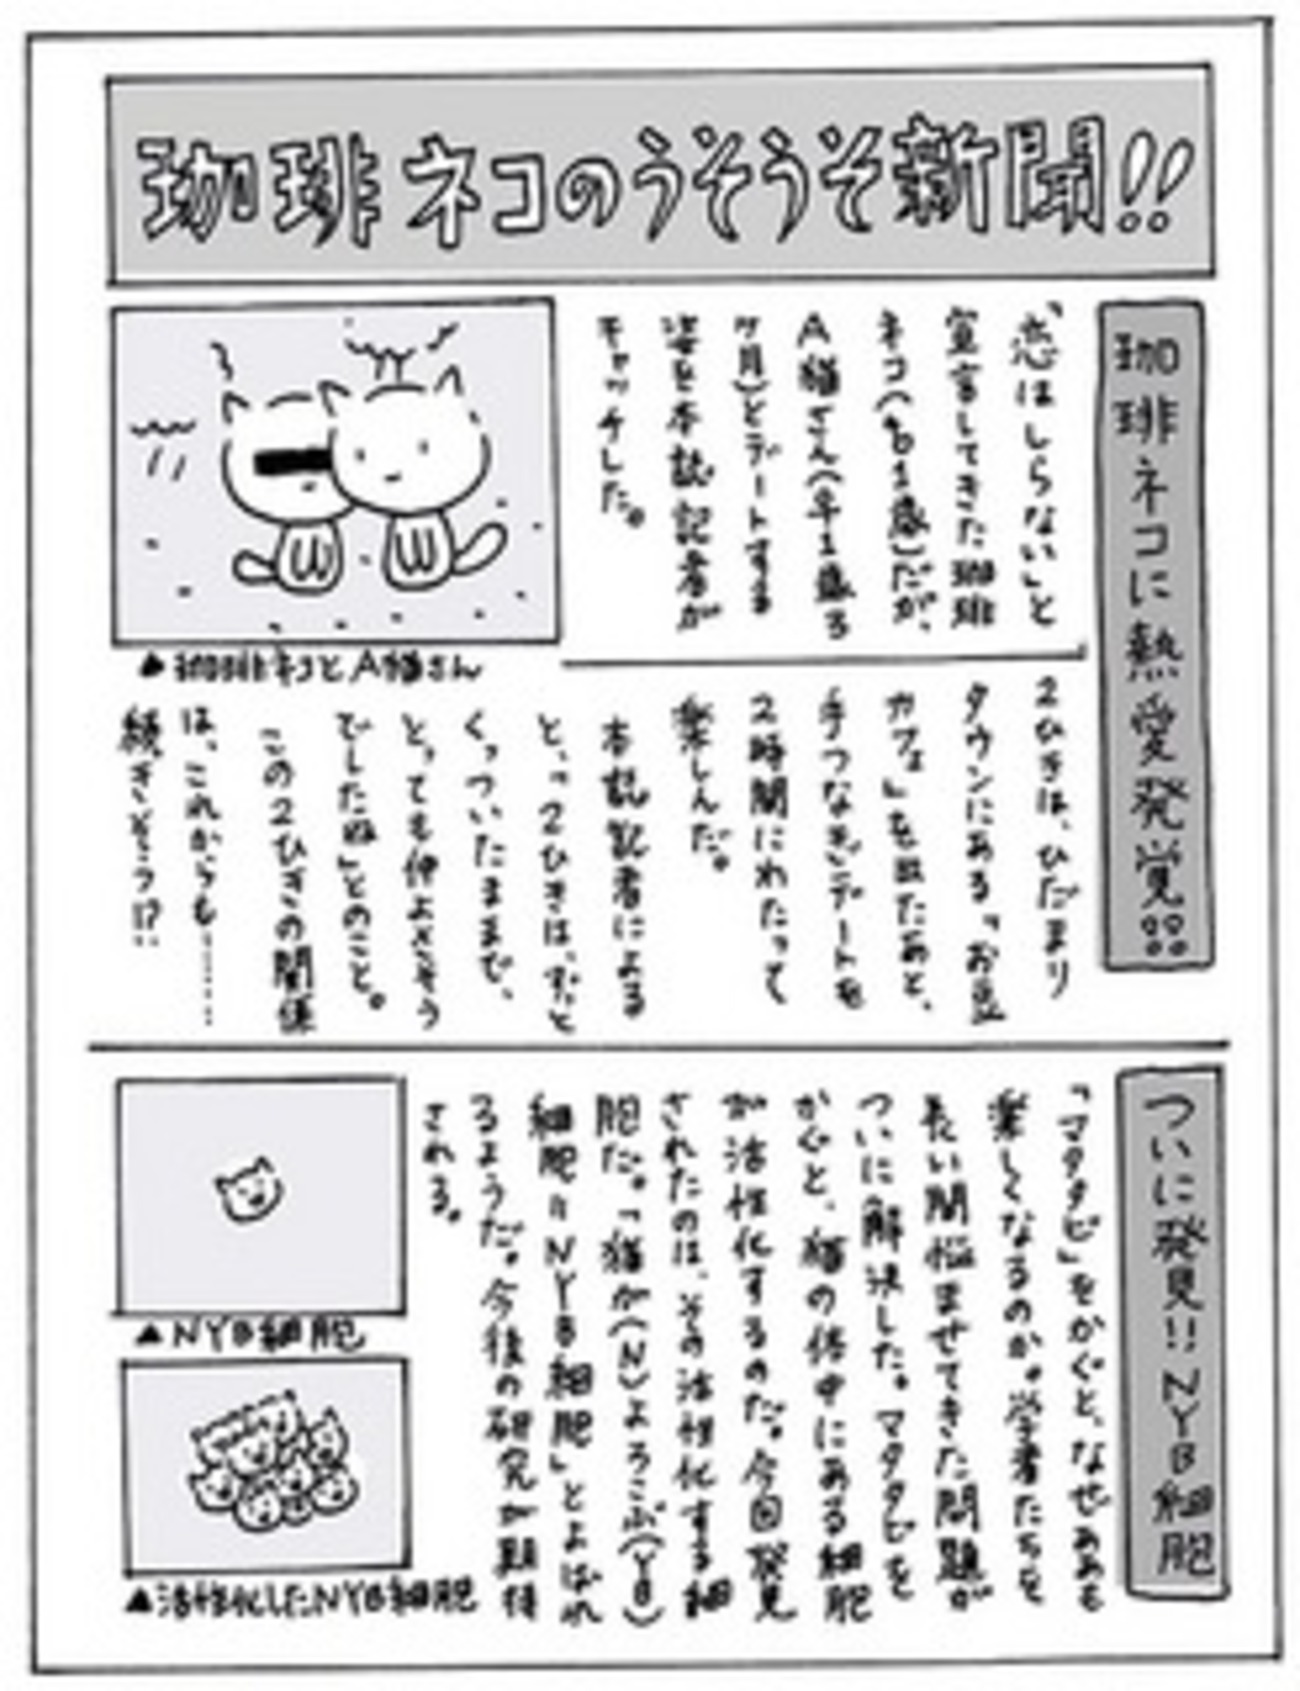 珈琲ネコのうそうそ新聞!!
珈琲ネコに熱愛発覚!!
「恋はしらない」と
宣言してきた珈琲
ネコ(1歳)だが、
A猫さん(年1歳3
ヶ月)とデートする
姿を本誌記者が
キャッチした。
▲珈琲ネコとA猫さん
2ひきは、ひだまり
タウンにある「お豆
カフェ」を出たあと、
手つなぎデートを
2時間にわたって
楽しんだ。
本誌記者による
と、「2ひきは、ずっと
くっついたままで、
とっても仲よさそう
でしたね」とのこと。
この2ひきの関係
は、これからも……
続きそう!?
ついに発見!!NYB細胞
「マタタビ」をかぐと、なぜああも
楽しくなるのか。学者たちを
長い間悩ませてきた問題が
ついに解決した。マタタビを
かぐと、猫の体中にある細胞
が活性化するのだ。今回発見
されたのは、その活性化する細
胞だ。「猫が(N)よろこぶ(YB)
細胞=NYB細胞」とよばれ
るようだ。今後の研究が期待
される。
▲NYB細胞
▲活性化したNYB細胞